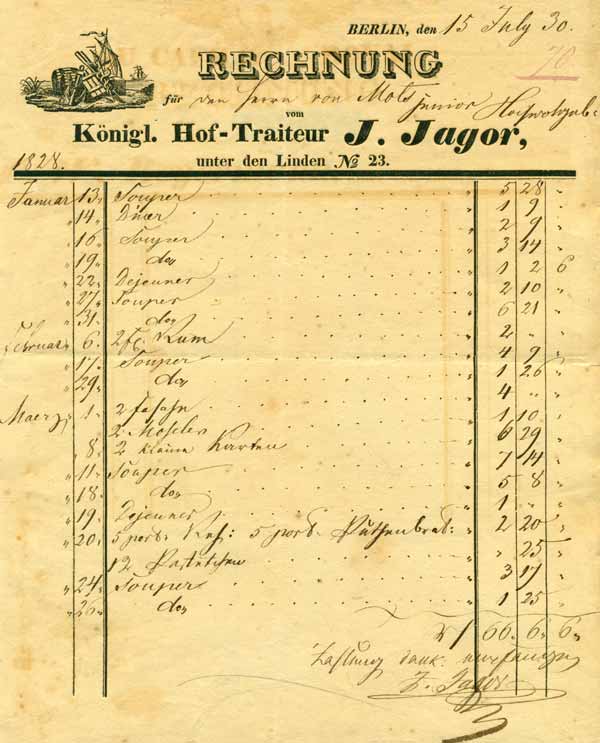 BERLIN, den 15 July 30.
70.
RECHNUNG
für den Herrn von Motz junior Hochwohlgeb:
vom
Königl. Hof-Traiteur J. Jagor,
unter den Linden No 23.
1828.
Januar 13. Souper 5 28 "
" 14. Diner 1 9 "
" 16. Souper 2 9 "
" 19. do 3 14 "
" 22. Dejeuner 1 2 6
" 27. Souper 2 10 "
" 31. do 6 21 "
Februar 6. 2 fl. Rum 2 " "
" 17. Souper 4 9 "
" 29. do 1 26 "
Maerz 1. 2 fasahn 4 " "
2 Mosler 1 10 "
" 8. 2 kleine Karten 6 29 "
" 11. Souper 7 14 "
" 18. do 5 8 "
" 19. Dejeuner 1 " "
" 20. 5 port. 5 port. Puthenbrat: 2 20 "
12 Pastetchen " 25 "
" 24. Souper 3 17 "
" 26. do 1 25 "
66. 6. 6.
Zahlung dank: empfangen
J. Jagor